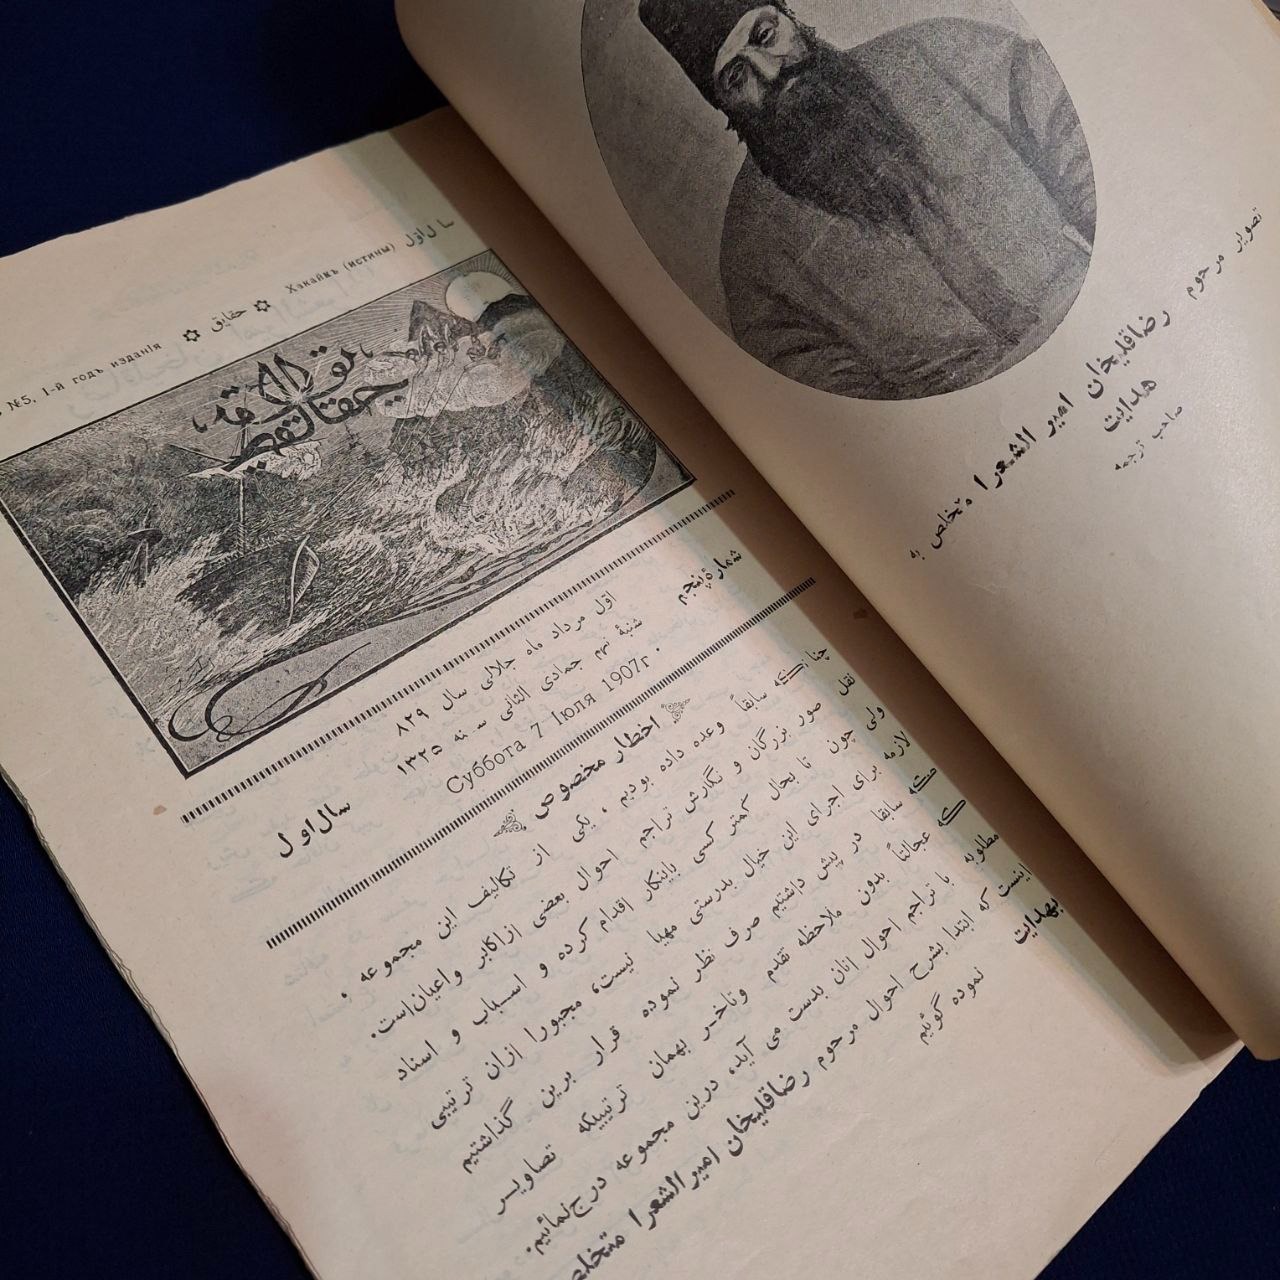 №5. 1-й годъ изданія ✡ حقایق ✡ Хакайкъ (истины) سال اوّل
شمارهٔ پنجم
اوّل مرداد ماه جلالی سال ۸۲۹
شنبهٔ نهم جمادی الثانی سـنه ۱۳۲۵
Суббота 7 Іюля 1907г.
سال اول
اخطار مخصوص
چنانکه سابقاً وعده داده بودیم ، یکی از تکالیف این مجموعه ،
نقل صور بزرگان و نگارش تراجم احوال بعضی ازاکابر واعیان‌است.
ولی چون تا بحال کمتر کسی باینکار اقدام کرده و اسـباب و اسناد
لازمه برای اجرای این خیال بدرستی مهیا نیست، مجبورا ازان ترتیبی
که سابقا در پیش داشتیم صرف نظر نموده قرار برین گذاشتیم
که عجالتاً بدون ملاحظه تقدم وتاخـر بهمان ترتیبیکه تصاویـر
مطلوبه با تراجم احوال انان بدست می آید، درین مجموعه درج‌نمائیم.
اینست که ابتدا بشرح احوال مرحوم رضاقلیخان امیرالشعرا متخلص
بهدایت نموده گوئیم
تصویر مرحوم رضاقلیخان امیر الشعرا متخلص به
هدایت
صاحب ترجمه